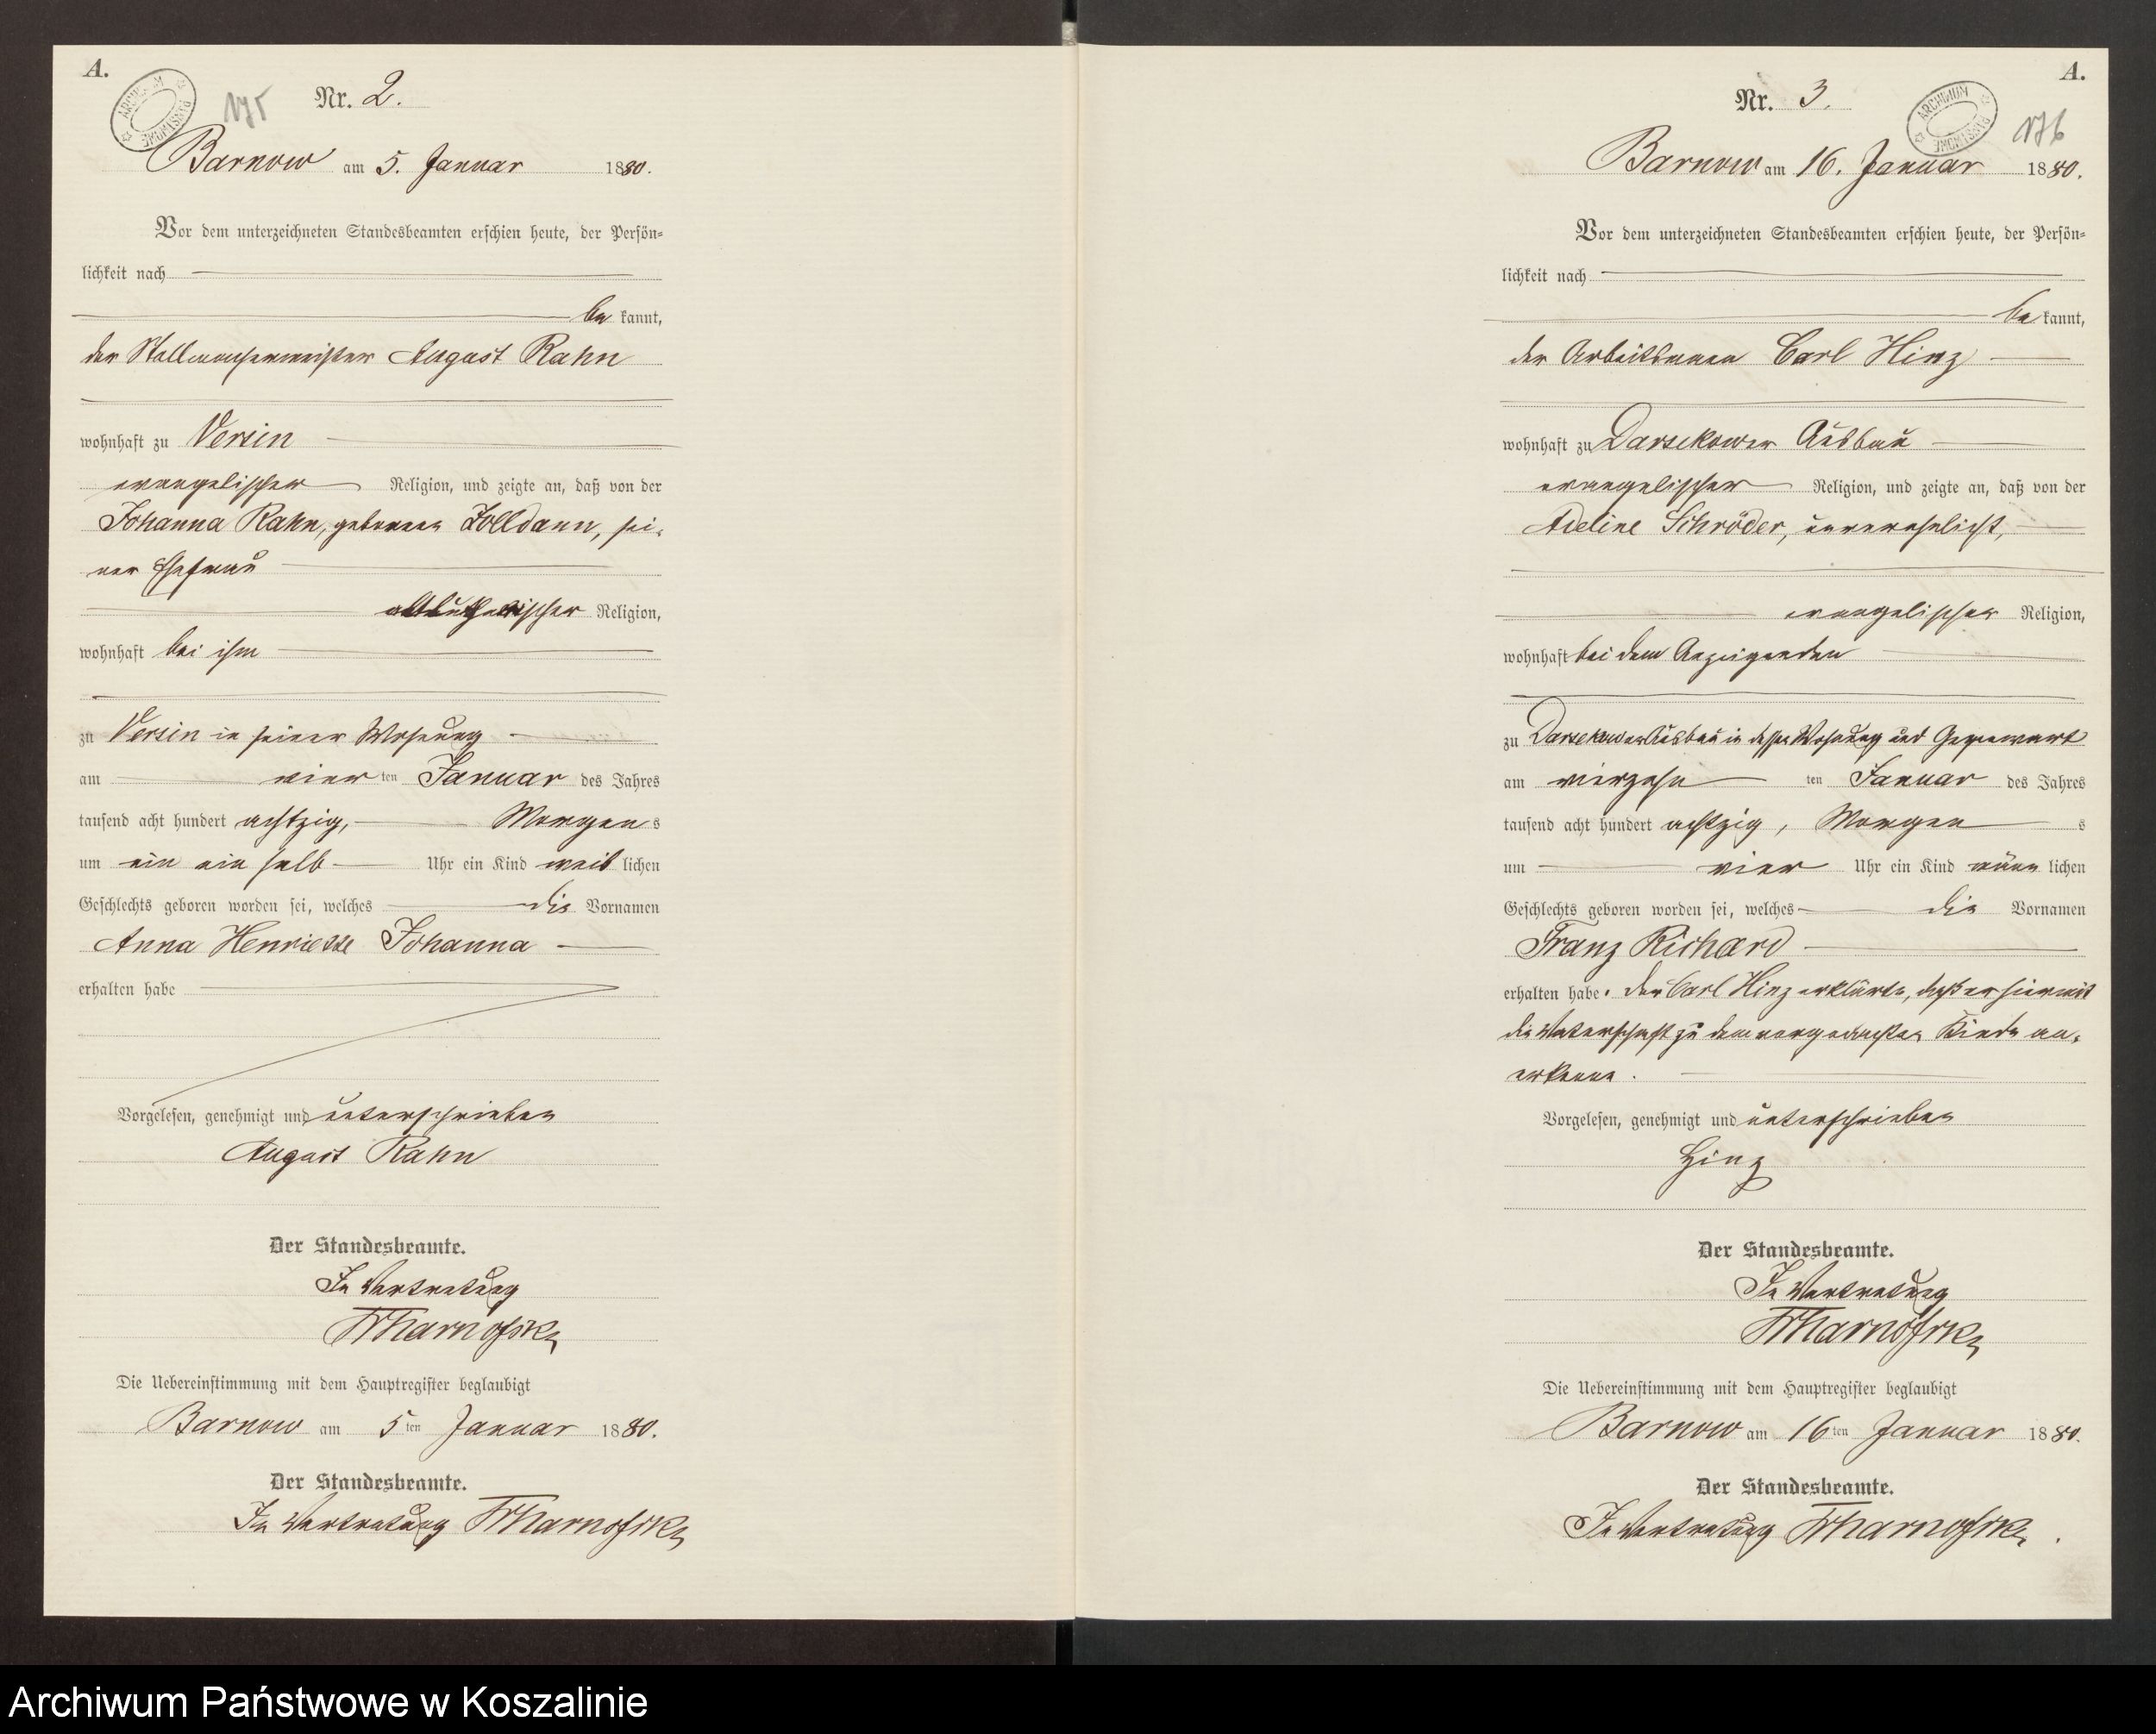 A.
ARCHIWUM PAŃSTWOWE
175
Nr. 2.
Barnow am 5. Januar 1880.
Vor dem unterzeichneten Standesbeamten erschien heute, der Persön-
lichkeit nach
be kannt,
der Stellmachermeister August Rahn
wohnhaft zu Versin
evangelischer Religion, und zeigte an, daß von der
Johanna Rahn, geborenen Zolldann, sei-
ner Ehefrau
altlutherischer Religion,
wohnhaft bei ihm
zu Versin in seiner Wohnung
am vier ten Januar des Jahres
tausend acht hundert achtzig, Morgen s
um ein ein halb Uhr ein Kind weib lichen
Geschlechts geboren worden sei, welches die Vornamen
Anna Henriette Johanna
erhalten habe
Vorgelesen, genehmigt und unterschrieben
August Rahn
Der Standesbeamte.
In Vertretung
Die Uebereinstimmung mit dem Hauptregister beglaubigt
Barnow am 5ten Januar 1880.
Der Standesbeamte.
In Vertretung
A.
ARCHIWUM PAŃSTWOWE
176
Nr. 3.
Barnow am 16. Januar 1880.
Vor dem unterzeichneten Standesbeamten erschien heute, der Persön-
lichkeit nach
be kannt,
der Arbeitsmann Carl Hinz
wohnhaft zu Darsekower Ausbau
evangelischer Religion, und zeigte an, daß von der
Adeline Schröder, unverehelicht,
evangelischer Religion,
wohnhaft bei dem Anzeigenden
zu Darsekower Ausbau in dessen Wohnung und Gegenwart
am vierzehn ten Januar des Jahres
tausend acht hundert achtzig, Morgen s
um vier Uhr ein Kind männ lichen
Geschlechts geboren worden sei, welches die Vornamen
Franz Richard
erhalten habe. Der Carl Hinz erklärte, daß er hiermit
die Vaterschaft zu dem vorgedachten Kinde an-
erkenne.
Vorgelesen, genehmigt und unterschrieben
Hinz
Der Standesbeamte.
In Vertretung
Die Uebereinstimmung mit dem Hauptregister beglaubigt
Barnow am 16ten Januar 1880.
Der Standesbeamte.
In Vertretung
Archiwum Państwowe w Koszalinie